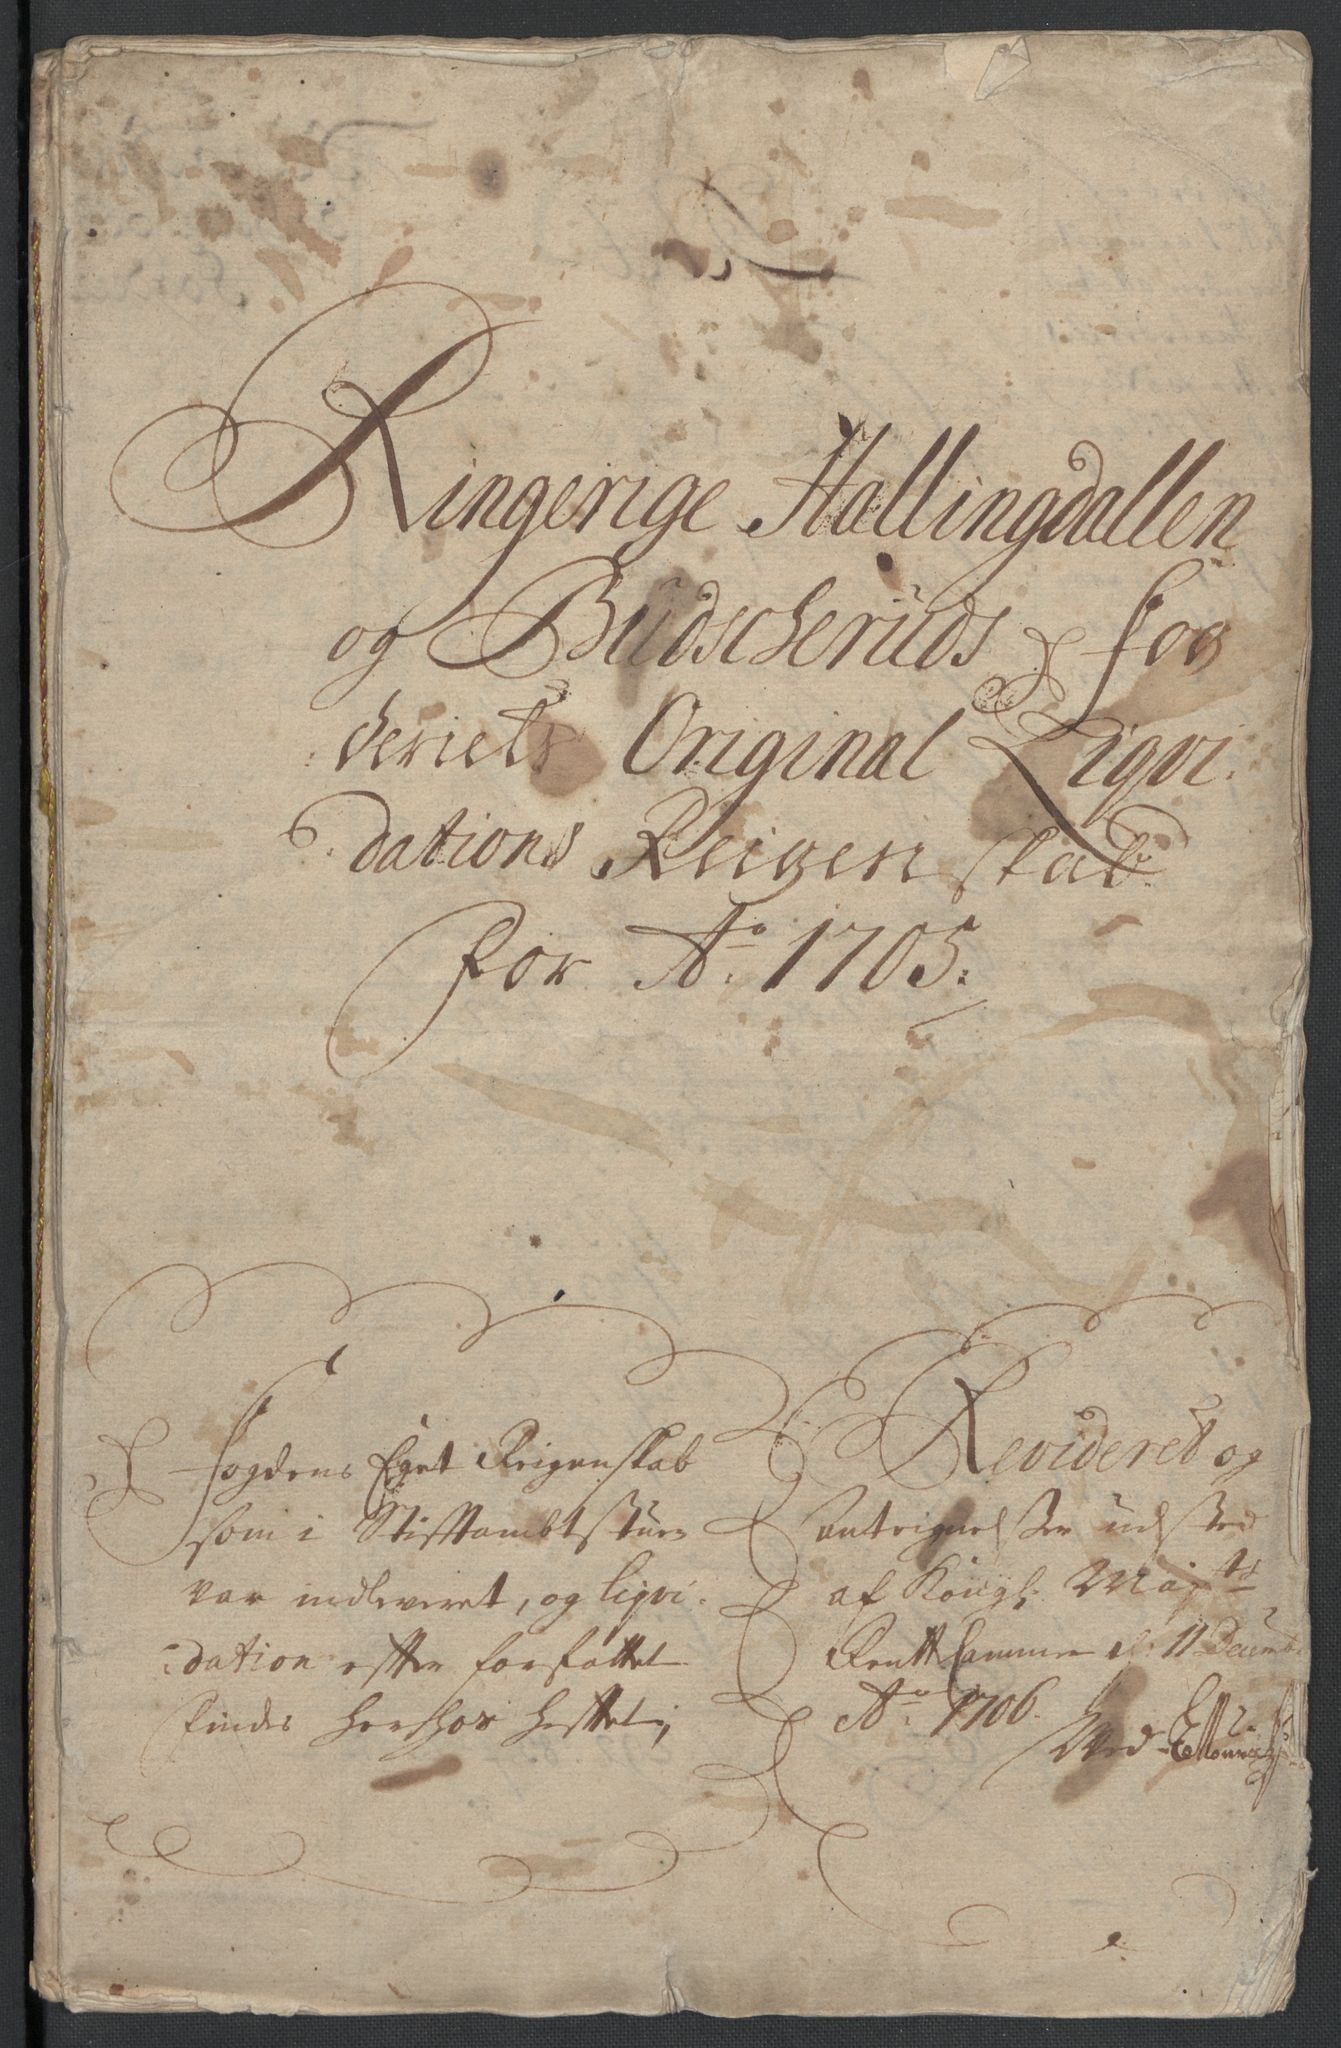 Ringerige Hallingdallen
og Budscheruds fog
deriets Original Liqvi-
dations Reigenskab
for Ao. 1705.
fogdens Eget Reigenskab
som i Stiftambtstuen
var indleveret, og liqvi-
dation efter forfattet
findes herhos heftet,
Revideret og
antegnelser udsted
af Kongl. Mayts
Rentekammer d. 11 Decemb
Ao. 1706.
Ved